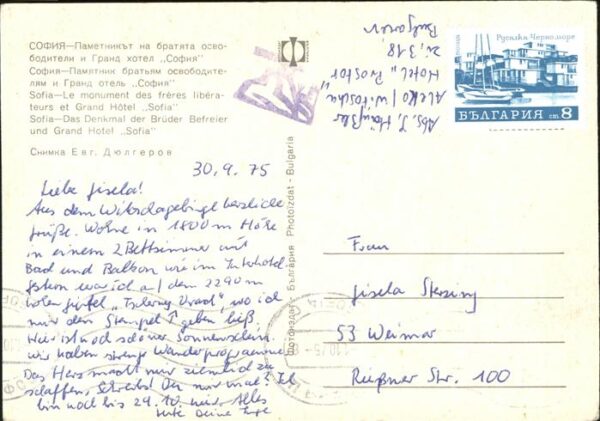 СОФИЯ—Паметникът на братята осво-
бодители и Гранд хотел „София"
София—Памятник братьям освободите-
лям и Гранд отель „София"
Sofia—Le monument des frères libéra-
teurs et Grand Hôtel „Sofia"
Sofia—Das Denkmal der Brüder Befreier
und Grand Hotel „Sofia"
Снимка Евг. Дюлгеров
30.9.75
Liebe Gisela!
Aus dem Witoschagebirge herzliche
Grüße. Wohne in 1800 m Höhe
in einem 2 Bettzimmer mit
Bad und Balkon wie im Interhotel
gestern war ich auf dem 2290 m
hohen Gipfel „Tscherny Wrach", wo ich
mir den Stempel ↑ geben ließ
Hier ist noch schöner Sonnenschein.
wir haben strenge Wanderprogramme
Das Herz macht mir ziemlich zu
schaffen, Schreibst Du mir mal? Ich
bin noch bis 29.10. hier. Alles
Gute Deine
Фотоиздат - България Photoizdat - Bulgaria
Abs.
Aleko/Witoscha
Hotel „Prostor"
Zi. 318
Bulgarien
Русалка Черноморе
БЪЛГАРИЯ ст 8
Frau
Gisela
53 Weimar
Rießner Str. 100